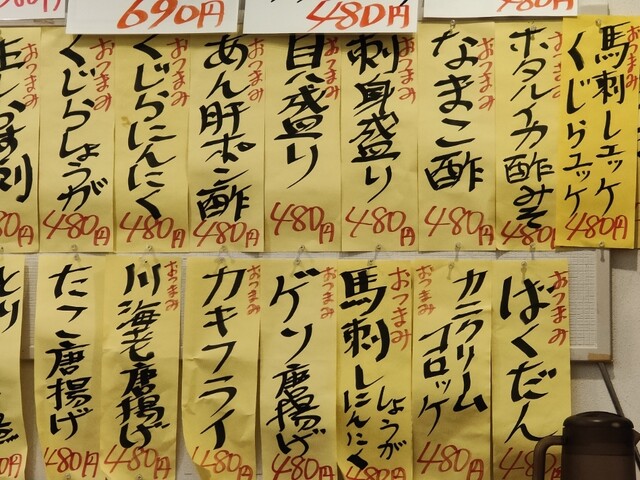 690円
480円
480円
おつまみ
馬刺しユッケ
くじらユッケ
480円
おつまみ
ホタルイカ酢みそ
480円
おつまみ
なまこ酢
480円
おつまみ
刺身盛り
480円
おつまみ
貝盛り
480円
おつまみ
あん肝ポン酢
480円
おつまみ
くじらにんにく
480円
おつまみ
くじらしょうが
480円
おつまみ
生しらす
480円
おつまみ
ばくだん
480円
おつまみ
カニクリーム
コロッケ
480円
おつまみ
馬刺し
しょうが
にんにく
480円
おつまみ
ゲソ唐揚げ
480円
おつまみ
カキフライ
480円
おつまみ
川海老唐揚げ
480円
たこ唐揚げ
480円